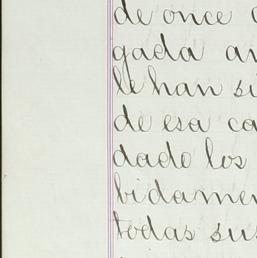 de once
gada an
le han si
de esa ca
dado los
bidamen
todas sus